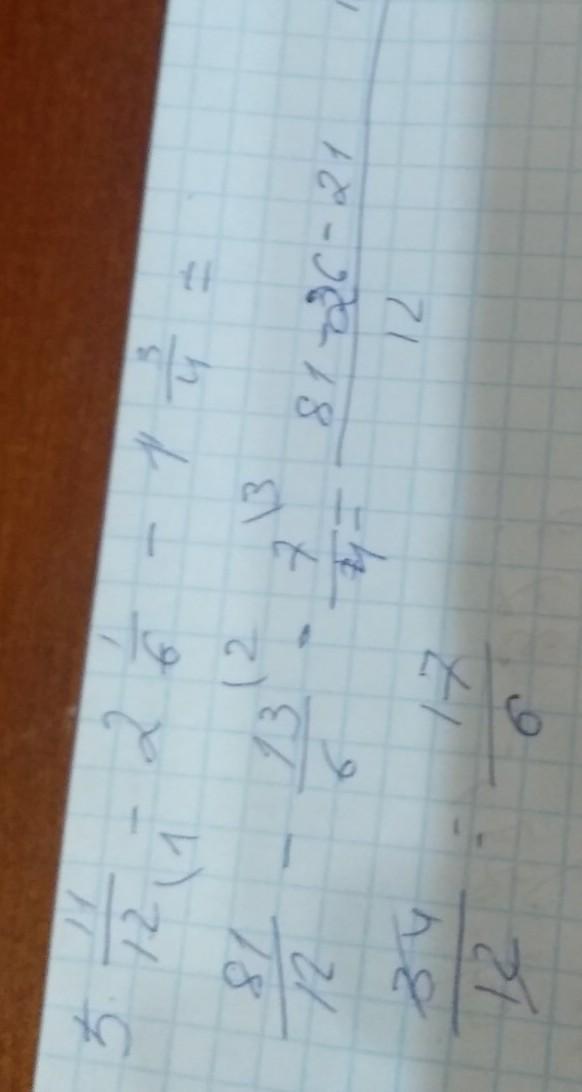 5 11/12 - 2 1/6 - 1 3/4 =
81/12 \1 - 13/6 \2 - 7/4 \3 = 81 - 26 - 21 / 12
34/12 = 17/6